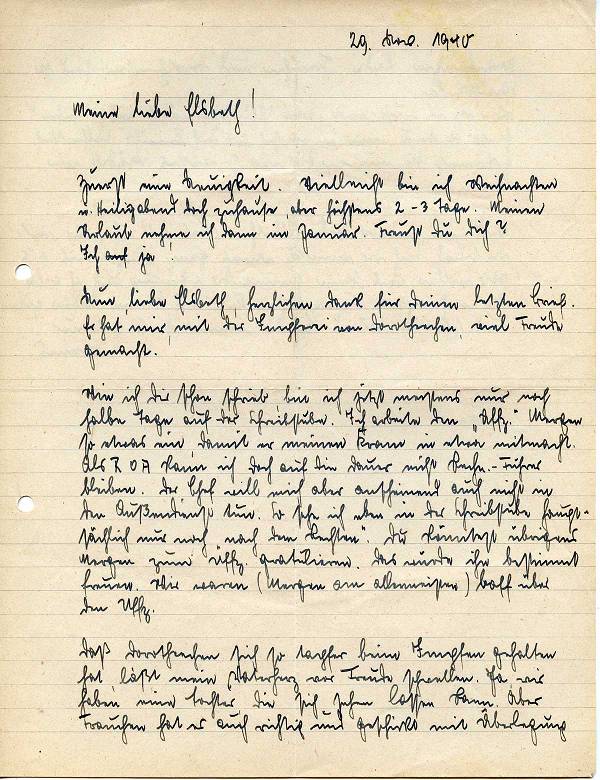 29. Nov. 1940
Meine liebe Elsbeth!
Zuerst eine Neuigkeit. Vielleicht bin ich Weihnachten
u. Heiligabend doch zuhause, aber höchstens 2-3 Tage. Meinen
Urlaub nehme ich dann im Januar. Freust Du Dich?
Ich auf ja!
Nun, liebe Elsbeth, herzlichen Dank für Deinen letzten Brief.
Er hat mir, mit der Impferei von Dorotheechen, viel Freude
gemacht.
Wie ich Dir schon schrieb, bin ich jetzt meistens nur noch
halbe Tage auf der Schreibstube. Ich arbeite den "Uffz." Mergen
so etwas ein, damit er meinen Kram in etwa mitmacht.
Als R O A kann ich doch auf die Dauer nicht Rechn.-Führer
bleiben. Der Chef will mich aber anscheinend auch nicht in
den Außendienst tun. So sehe ich eben in der Schreibstube haupt-
sächlich nur noch nach dem Rechten. Du könntest übrigens
Mergen zum Uffz. gratulieren. Das würde ihn bestimmt
freuen. Wir waren (Mergen am allermeisten) baff über
den Uffz.
Daß Dorotheechen sich so tapfer beim Impfen gehalten
hat, läßt mein Vaterherz vor Freude schwellen. Ja wir
haben eine Tochter, die sich sehen lassen kann. Aber
Frauchen hat es auch richtig und geschickt mit Überlegung